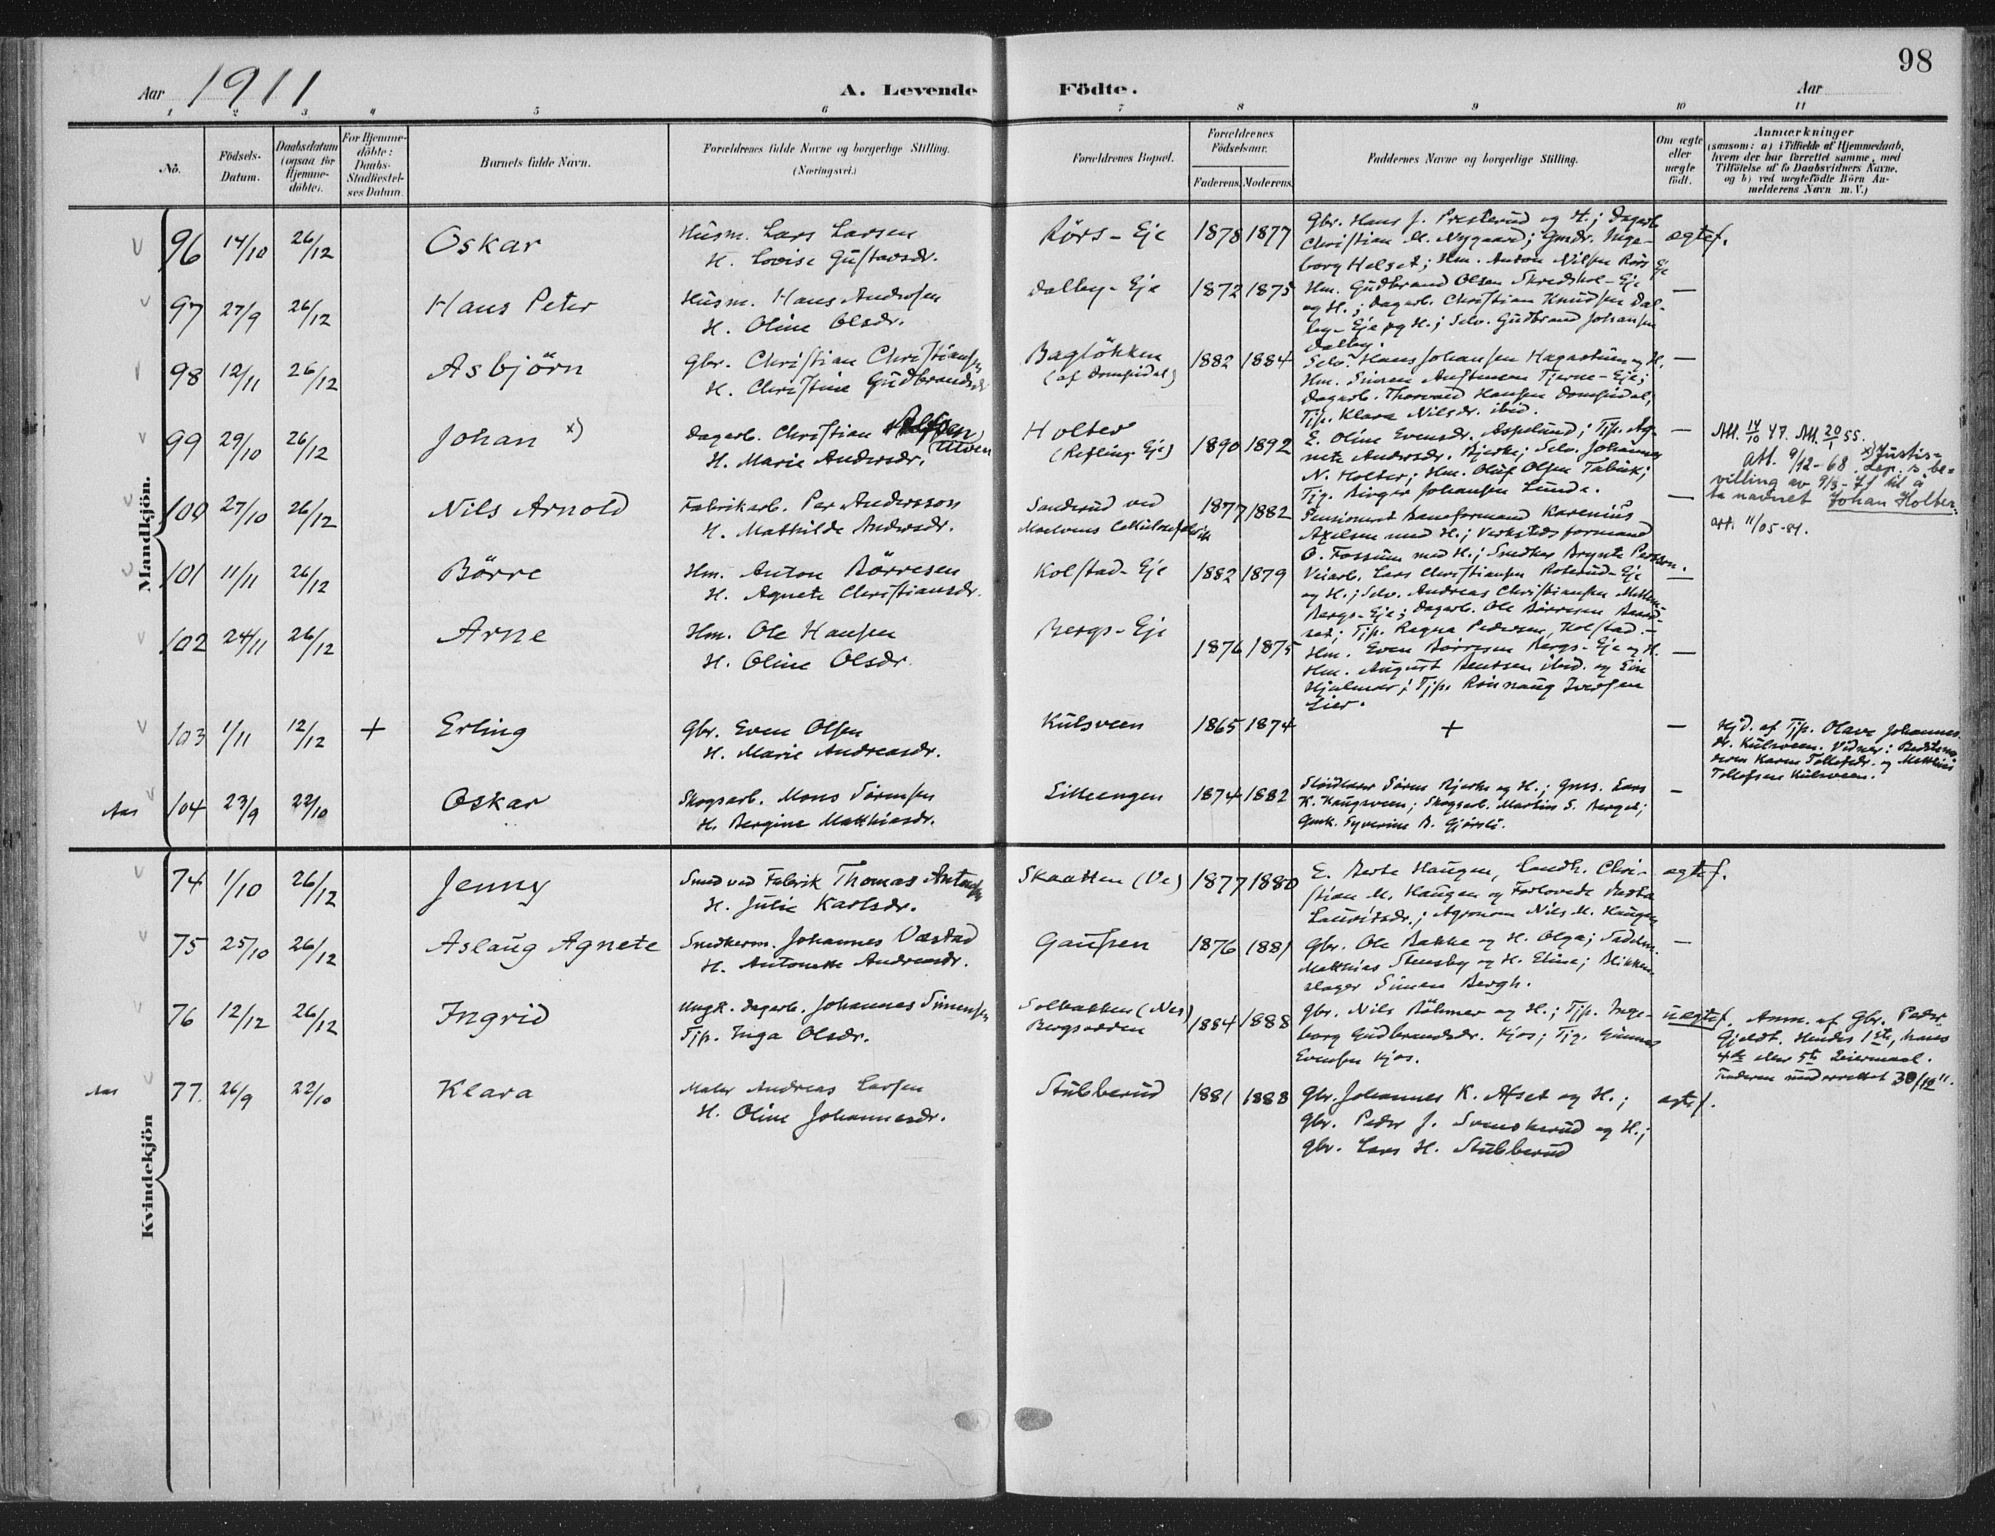 98
Aar 1911
A. Levende Födte.
Aar
1 2 3 4 5 6 7 8 9 10 11
No.
Födsels-Datum.
Daabsdatum (ogsaa for Hjemme-döbte).
For Hjemme-döbte: Daabs-Stadfæstel-ses Datum.
Barnets fulde Navn.
Forældrenes fulde Navne og borgerlige Stilling. (Næringsvei.)
Forældrenes Bopæl.
Forældrenes Födselsaar.
Faderens. Moderens.
Faddernes Navne og borgerlige Stilling.
Om ægte eller uægte födt.
Anmærkninger
(saasom: a) i Tilfælde af Hjemmedaab, hvem der har forrettet samme, med Tilföielse af to Daabsvidners Navne, og b) ved uægtefödte Börn An-melderens Navn m. V.)
Mandkjön.
96 14/10 26/12 Oskar
Husm. Lars Larsen
H. Lovise Gustavsdr.
Rörs-Eje 1878 1877
Gbr. Hans J. Presterud og H.; Dagarb.
Christian M. Nygaard; Gmdr. Inge-
borg Helset; Hm. Anton Nilsen Rörs Eje
ægtef.
97 27/9 26/12 Hans Peter
Husm. Hans Andersen
H. Oline Olsdr.
Dalby-Eje 1872 1875
Hm. Gudbrand Olsen Skredshol-Eje
og H.; Dagarb. Christian Knudsen Dal-
by-Eje og H.; Selv. Gudbrand Johansen
Dalby.
—
98 12/11 26/12 Asbjörn
Gbr. Christian Christiansen
H. Christine Gudbrandsdr.
Baglökken
(af Domsidal) 1882 1884
Selv. Hans Johansen Hagastuen og H.
Hm. Simen Austensen Tjerne-Eje;
Dagarb. Thorvald Hansen Domsidal;
Tjp. Klara Nilsdr. ibid.
—
99 29/10 26/12 Johan x)
Dagarb. Christian
H. Marie Andersdr.
Holter
(Refling Eje) 1890 1892
E. Oline Evensdr. Aspelund; Tjp. Ag-
nete Andersdr. Bjerke; Selv. Johannes
N. Holter; Hm. Oluf Olsen
Tjg. Birger Johansen Lunde.
—
Att. 14/10 47. Att. 20/1 55.
Att. 9/12-68. x) Justis-
dep.s be-
villing av 9/3-71 til å
ta navnet Johan Holter.
att. 11/05-81.
100 27/10 26/12 Nils Arnold
Fabrikarb. Per Andersson
H. Mathilde Andersdr.
Sanderud ved
Moelvens Cellulosefabrik 1877 1882
Pensioneret Baneformand Karenius
Axelsen med H.; Verkstedsformand
O. Fossum med H.; Snedker Brynte Persson.
—
101 11/11 26/12 Börre
Hm. Anton Börresen
H. Agnete Christiansdr.
Kolstad-Eje 1882 1879
Veiarb. Lars Christiansen Roterud-Eje
og H.; Selv. Andreas Christiansen
Bergs-Eje; Dagarb. Ole Börresen
Tjp. Ragna Pedersen, Kolstad.
—
102 24/11 26/12 Arne
Hm. Ole Hansen
H. Oline Olsdr.
Bergs-Eje 1876 1875
Hm. Even Börresen Bergs-Eje og H.
Hm. August Bentsen ibid. og
Hjalmar; Tjp. Rönnaug Iversen
Lier.
—
103 1/11 12/12 + Erling
Gbr. Even Olsen
H. Marie Andreasdr.
Kulsveen 1865 1874
+
—
Hjd. af Tjp. Olave Johannes-
dr. Kulsveen. Vidner: Bedstemo-
deren Karen Tollefsdr. og Mathias
Tollefsen Kulsveen.
Aas 104 23/9 22/10 Oskar
Skogsarb. Mons Sörensen
H. Bergine Matthiasdr.
Lilleengen 1874 1882
Sören Bjerke og H.; Gms. Lars
K. Kaugsveen; Skogsarb. Martin S. Berget;
Gmk. Syverine B. Gjörsli.
—
Kvindekjön
74 1/10 26/12 Jenny
Smed ved Fabrik Thomas Antonsen
H. Julie Karlsdr.
Skaatten (Ve) 1877 1880
E. Berte Haugen, Landh. Chri-
stian M. Haugen og Forlovede
Lauritsdr.; Agronom Nils M. Haugen
ægtef.
75 25/10 26/12 Aslaug Agnete
Snedkerm. Johannes Væstad
H. Antonette Andreasdr.
Gaupen 1876 1881
Gbr. Ole Bakke og H. Olga; Sadelm.
Matthias Stensby og H. Elina; Blikken-
slager Simen Bergh.
—
76 12/12 26/12 Ingrid
Ungk. dagarb. Johannes Simensen
Tjp. Inga Olsdr.
Solbakken (Nes)
Bergsodden 1884 1888
Gbr. Nils Böhmer og H.; Tjp. Inge-
borg Gudbrandsdr. Kjos; Tjg. Gunnar
Evensen Kjos.
uægtef.
Anm. af Gbr. Peder
Gjeldt. Hendes 1ste, hans
4de eller 5te Leiermaal.
Faderen underrettet 30/12 11.
Aas 77. 26/9 22/10 Klara
Maler Andreas Larsen
H. Oline Johannesdr.
Stubberud 1881 1888
Gbr. Johannes K. Afset og H.;
Gbr. Peder J. Svenskerud og H.;
Gbr. Lars H. Stubberud
ægtef.